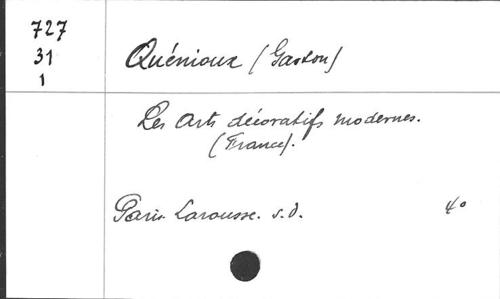 727
31
1
Quénioux (Gaston)
Les Arts décoratifs modernes.
(France).
Paris. Larousse. s.d. 4o